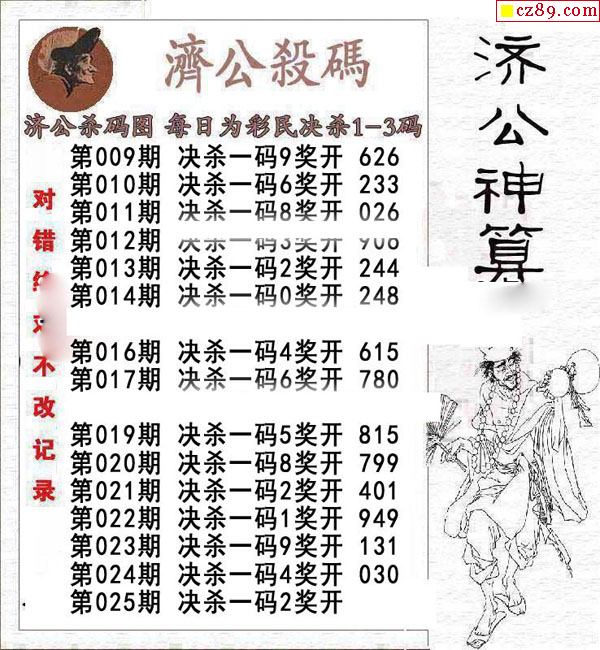 cz89.com
濟公殺碼
济公杀码图 每日为彩民决杀1-3码
第009期 决杀一码9奖开 626
第010期 决杀一码6奖开 233
第011期 决杀一码8奖开 026
第012期 决杀一码3奖开 908
第013期 决杀一码2奖开 244
第014期 决杀一码0奖开 248
第016期 决杀一码4奖开 615
第017期 决杀一码6奖开 780
第019期 决杀一码5奖开 815
第020期 决杀一码8奖开 799
第021期 决杀一码2奖开 401
第022期 决杀一码1奖开 949
第023期 决杀一码9奖开 131
第024期 决杀一码4奖开 030
第025期 决杀一码2奖开
对错 不改记录
济公神算